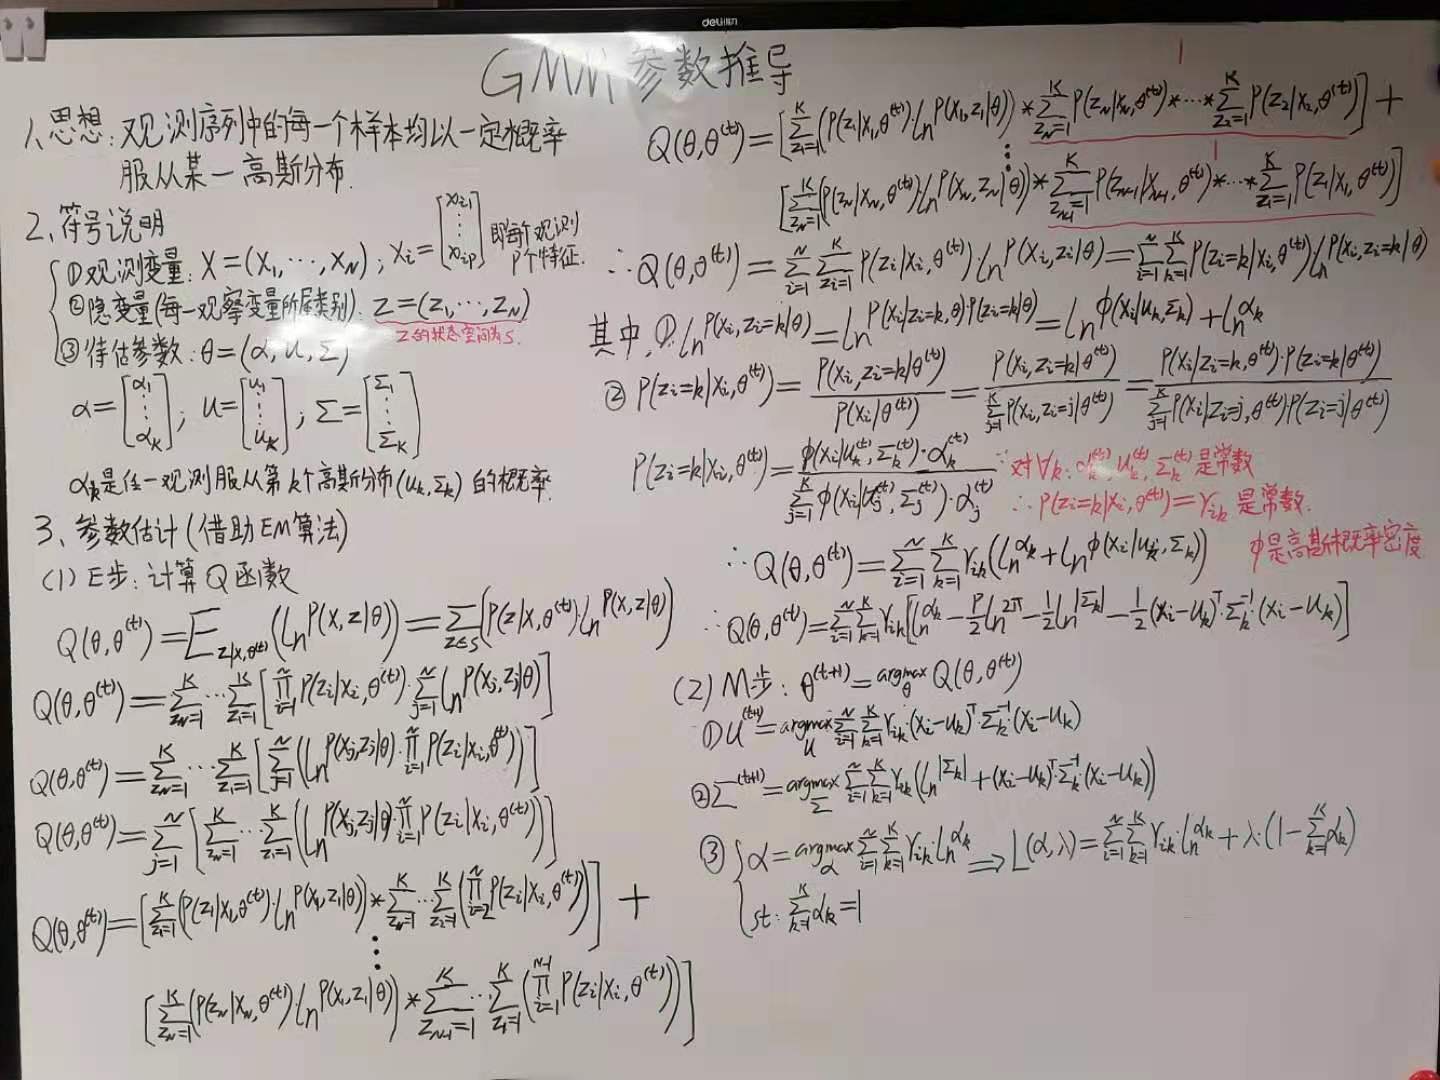 deli得力
GMM参数推导
1、思想：观测序列中的每一个样本均以一定概率
服从某一高斯分布.
2、符号说明
①观测变量：X=(x₁,⋯,x_N)；x_i=[x_i1 ⋮ x_ip] 即每个观测
p个特征.
②隐变量(每一观察变量所属类别)：Z=(z₁,⋯,z_N)
Z的状态空间为S.
③待估参数：θ=(α,u,Σ)
α=[α₁ ⋮ α_K]；u=[u₁ ⋮ u_K]；Σ=[Σ₁ ⋮ Σ_K]
α_k是任一观测服从第k个高斯分布(u_k,Σ_k)的概率.
3、参数估计(借助EM算法)
(1) E步：计算Q函数
Q(θ,θ^(t))=E_{z|x,θ^(t)}(ln^{P(x,z|θ)})=∑_{z∈S}(P(z|x,θ^(t))·ln^{P(x,z|θ)})
Q(θ,θ^(t))=∑_{z_N=1}^K⋯∑_{z₁=1}^K[∏_{i=1}^N P(z_i|x_i,θ^(t))·∑_{j=1}^N ln^{P(x_j,z_j|θ)}]
Q(θ,θ^(t))=∑_{z_N=1}^K⋯∑_{z₁=1}^K[∑_{j=1}^N(ln^{P(x_j,z_j|θ)}·∏_{i=1}^N P(z_i|x_i,θ^(t)))]
Q(θ,θ^(t))=∑_{j=1}^N[∑_{z_N=1}^K⋯∑_{z₁=1}^K(ln^{P(x_j,z_j|θ)}·∏_{i=1}^N P(z_i|x_i,θ^(t)))]
Q(θ,θ^(t))=[∑_{z₁=1}^K(P(z₁|x₁,θ^(t))·ln^{P(x₁,z₁|θ)})*∑_{z_N=1}^K⋯∑_{z₂=1}^K(∏_{i=2}^N P(z_i|x_i,θ^(t)))]+
⋮
[∑_{z_N=1}^K(P(z_N|x_N,θ^(t))·ln^{P(x₁,z₁|θ)})*∑_{z_{N-1}=1}^K⋯∑_{z₁=1}^K(∏_{i=1}^{N-1} P(z_i|x_i,θ^(t)))]
1
Q(θ,θ^(t))=[∑_{z₁=1}^K(P(z₁|x₁,θ^(t))·ln^{P(x₁,z₁|θ)})*∑_{z_N=1}^K P(z_N|x_N,θ^(t))*⋯*∑_{z₂=1}^K P(z₂|x₂,θ^(t))]+
⋮ 1
[∑_{z_N=1}^K(P(z_N|x_N,θ^(t))·ln^{P(x_N,z_N|θ)})*∑_{z_{N-1}=1}^K P(z_{N-1}|x_{N-1},θ^(t))*⋯*∑_{z₁=1}^K P(z₁|x₁,θ^(t))]
∴Q(θ,θ^(t))=∑_{i=1}^N∑_{z_i=1}^K P(z_i|x_i,θ^(t))·ln^{P(x_i,z_i|θ)}=∑_{i=1}^N∑_{k=1}^K P(z_i=k|x_i,θ^(t))·ln^{P(x_i,z_i=k|θ)}
其中,①ln^{P(x_i,z_i=k|θ)}=ln^{P(x_i|z_i=k,θ)·P(z_i=k|θ)}=ln^{ϕ(x_i|u_k,Σ_k)}+ln^{α_k}
②P(z_i=k|x_i,θ^(t))=P(x_i,z_i=k|θ^(t))/P(x_i|θ^(t))=P(x_i,z_i=k|θ^(t))/∑_{j=1}^K P(x_i,z_i=j|θ^(t))=P(x_i|z_i=k,θ^(t))·P(z_i=k|θ^(t))/∑_{j=1}^K P(x_i|z_i=j,θ^(t))P(z_i=j|θ^(t))
P(z_i=k|x_i,θ^(t))=ϕ(x_i|u_k^(t),Σ_k^(t))·α_k^(t)/∑_{j=1}^K ϕ(x_i|u_j^(t),Σ_j^(t))·α_j^(t) ∵对∀k,α_k^(t),u_k^(t),Σ_k^(t)是常数
∴P(z_i=k|x_i,θ^(t))=γ_ik是常数.
∴Q(θ,θ^(t))=∑_{i=1}^N∑_{k=1}^K γ_ik(ln^{α_k}+ln^{ϕ(x_i|u_k,Σ_k)}) ϕ是高斯概率密度
∴Q(θ,θ^(t))=∑_{i=1}^N∑_{k=1}^K γ_ik[ln^{α_k}-p/2 ln^{2π}-1/2 ln^{|Σ_k|}-1/2(x_i-u_k)^T·Σ_k^{-1}·(x_i-u_k)]
(2) M步：θ^(t+1)=argmax_θ Q(θ,θ^(t))
①u^(t+1)=argmax_u∑_{i=1}^N∑_{k=1}^K γ_ik·(x_i-u_k)^T·Σ_k^{-1}(x_i-u_k)
②Σ^(t+1)=argmax_Σ∑_{i=1}^N∑_{k=1}^K γ_ik(ln^{|Σ_k|}+(x_i-u_k)^T·Σ_k^{-1}(x_i-u_k))
③{α=argmax_α∑_{i=1}^N∑_{k=1}^K γ_ik·ln^{α_k}⇒L(α,λ)=∑_{i=1}^N∑_{k=1}^K γ_ik·ln^{α_k}+λ·(1-∑_{k=1}^K α_k)
st：∑_{k=1}^K α_k=1